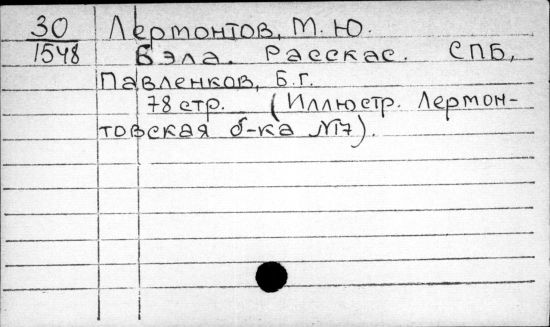 30 Лермонтов, М. Ю.
1548 Бэла. Расскас. СПБ,
Павленков, Б.г.
78 стр. (Иллюстр. Лермон-
товская б-ка №7).